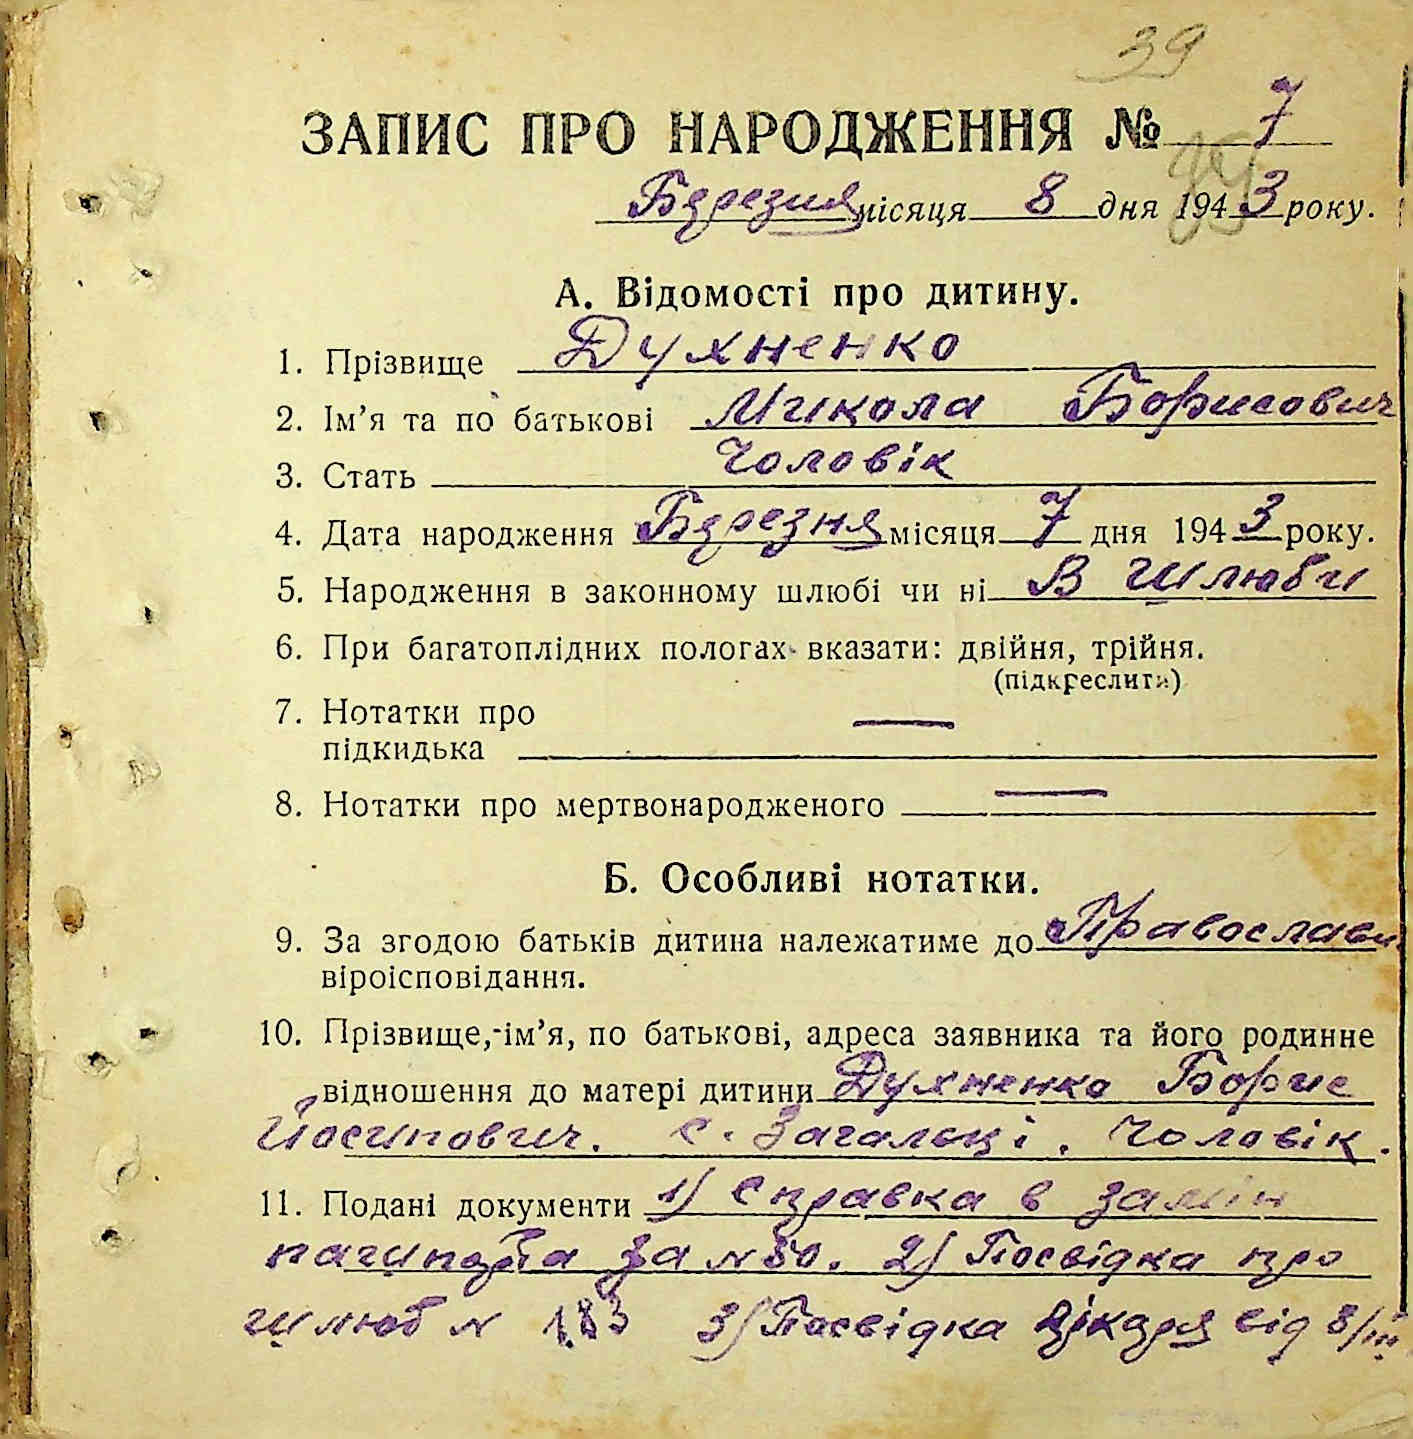 39
ЗАПИС ПРО НАРОДЖЕННЯ № 7
Березня місяця 8 дня 1943 року.
А. Відомості про дитину.
1. Прізвище Духненко
2. Ім’я та по батькові Микола Борисович
3. Стать Чоловік
4. Дата народження Березня місяця 7 дня 1943 року.
5. Народження в законному шлюбі чи ні В шлюби
6. При багатоплідних пологах вказати: двійня, трійня.
(підкреслити)
7. Нотатки про —
підкидька
8. Нотатки про мертвонародженого —
Б. Особливі нотатки.
9. За згодою батьків дитина належатиме до Православн
віроісповідання.
10. Прізвище, ім’я, по батькові, адреса заявника та його родинне
відношення до матері дитини Духненко Борис
Йосипович. с. Загальці. Чоловік.
11. Подані документи 1) Справка в замін
пашпорта за № 50. 2) Посвідка про
шлюб № 183 3) Посвідка лікаря від 8/III